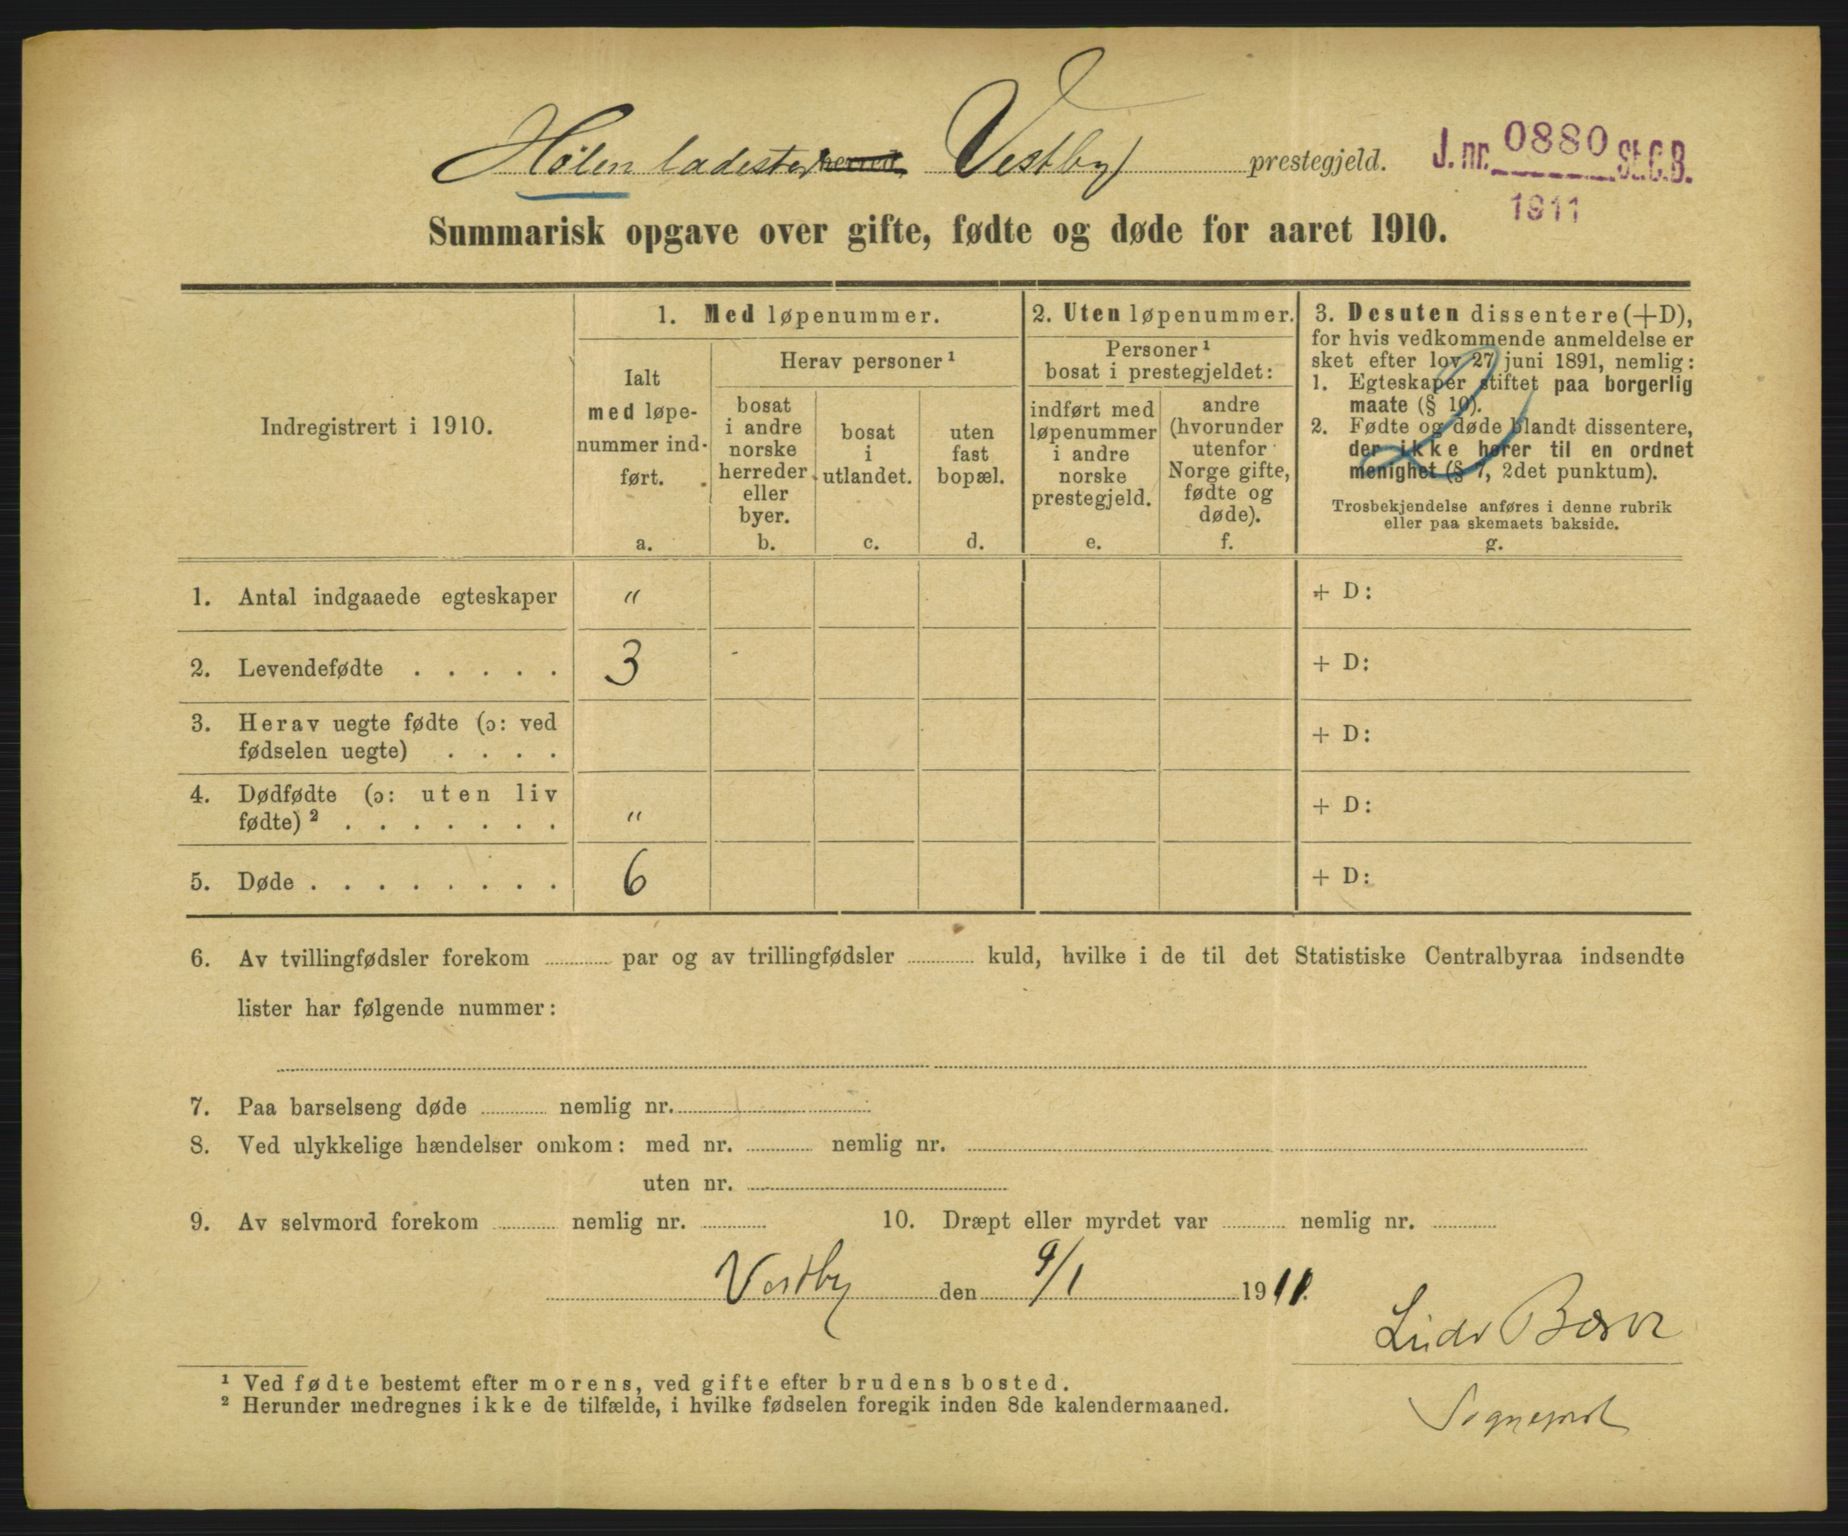 Hølen ladested herred, Vestby prestegjeld. J. nr. 0880 St.C.B.
1911
Summarisk opgave over gifte, fødte og døde for aaret 1910.
Indregistrert i 1910.
1. Med løpenummer.
Ialt
med løpe-
nummer ind-
ført.
a.
Herav personer ¹
bosat
i andre
norske
herreder
eller
byer.
b.
bosat
i
utlandet.
c.
uten
fast
bopæl.
d.
2. Uten løpenummer.
Personer ¹
bosat i prestegjeldet:
indført med
løpenummer
i andre
norske
prestegjeld.
e.
andre
(hvorunder
utenfor
Norge gifte,
fødte og
døde).
f.
3. Desuten dissentere (+D),
for hvis vedkommende anmeldelse er
sket efter lov 27 juni 1891, nemlig:
1. Egteskaper stiftet paa borgerlig
maate (§ 10).
2. Fødte og døde blandt dissentere,
der ikke hører til en ordnet
menighet (§ 7, 2det punktum).
Trosbekjendelse anføres i denne rubrik
eller paa skemaets bakside.
g.
1. Antal indgaaede egteskaper " + D:
2. Levendefødte . . . . . 3 + D:
3. Herav uegte fødte (ɔ: ved
fødselen uegte) . . . . + D:
4. Dødfødte (ɔ: uten liv
fødte) ² . . . . . . . " + D:
5. Døde . . . . . . . . . 6 + D:
6. Av tvillingfødsler forekom par og av trillingfødsler kuld, hvilke i de til det Statistiske Centralbyraa indsendte
lister har følgende nummer:
7. Paa barselseng døde nemlig nr.
8. Ved ulykkelige hændelser omkom: med nr. nemlig nr.
uten nr.
9. Av selvmord forekom nemlig nr. 10. Dræpt eller myrdet var nemlig nr.
Vestby den 9/1 1911.
¹ Ved fødte bestemt efter morens, ved gifte efter brudens bosted.
² Herunder medregnes ikke de tilfælde, i hvilke fødselen foregik inden 8de kalendermaaned.
Sogneprest